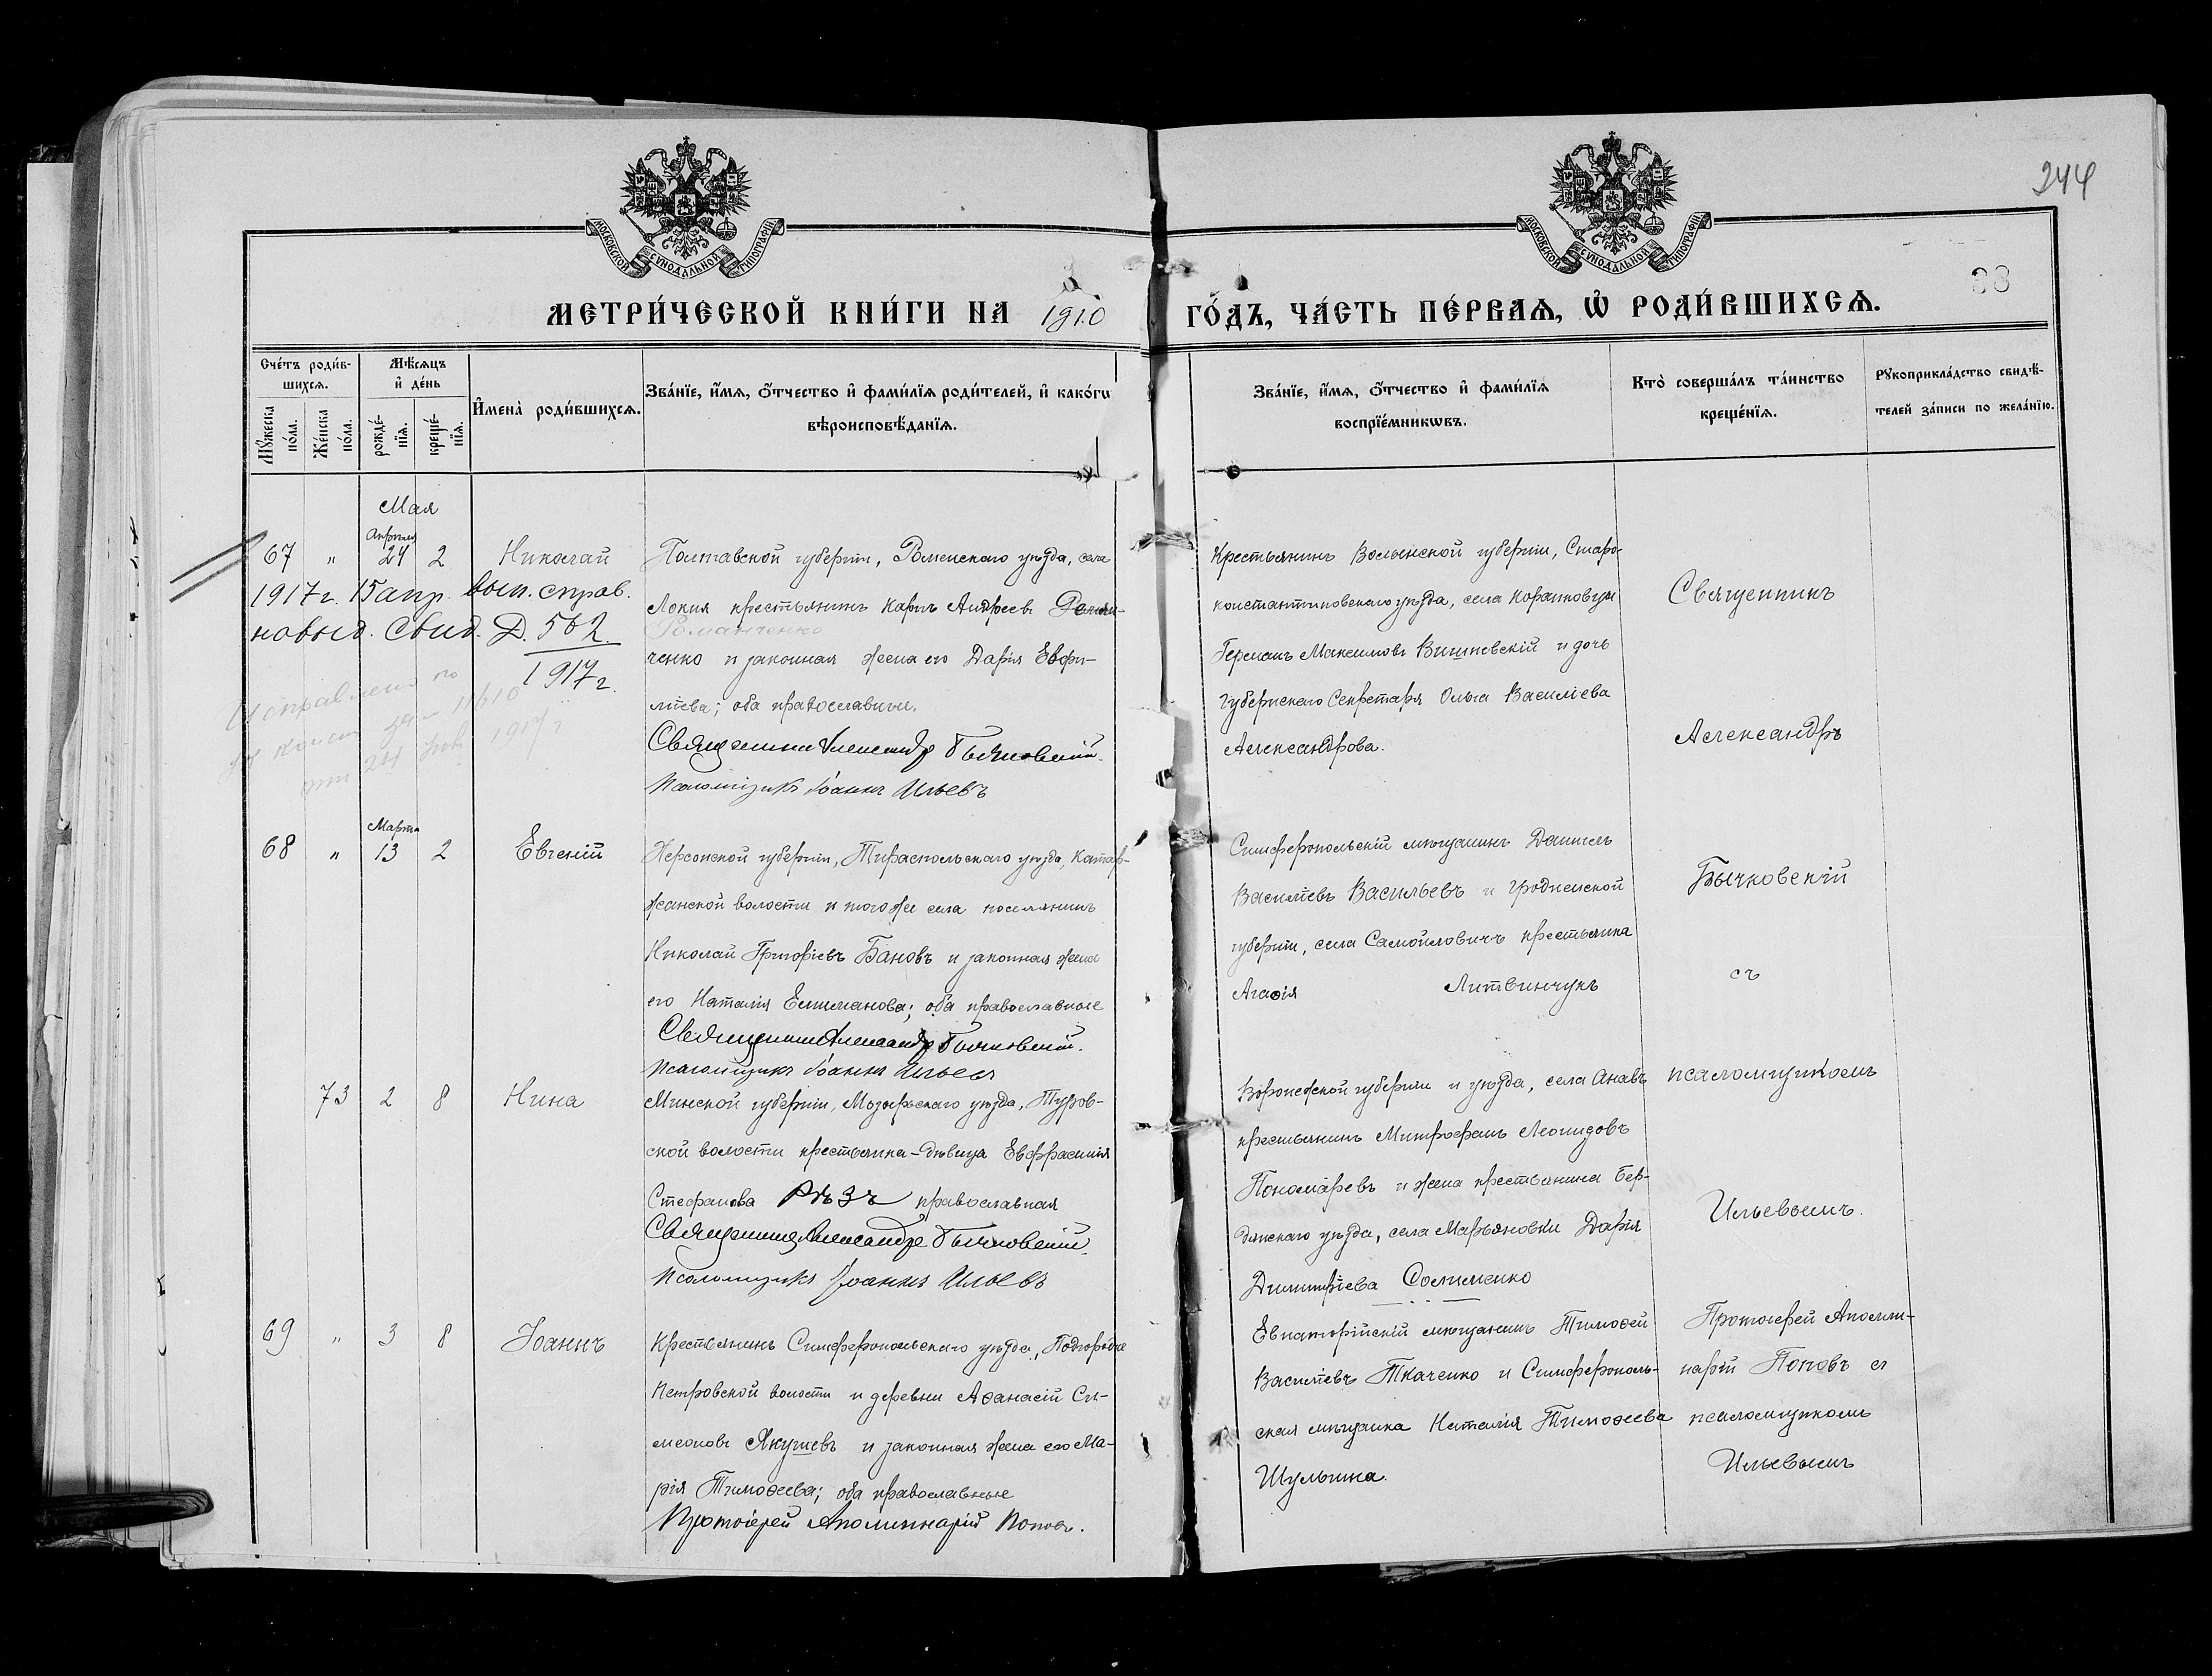 244
88
МОСКОВСКОЙ СѴНОДАЛЬНОЙ ТИПОГРАФІИ
МОСКОВСКОЙ СѴНОДАЛЬНОЙ ТИПОГРАФІИ
МЕТРИ́ЧЕСКОЙ КНИ́ГИ НА 1910 ГО́ДЪ, ЧА́СТЬ ПЕ́РВАѦ, Ѽ РОДИ́ВШИХСѦ.
Сче́тъ роди́в-
шихсѧ.
Мꙋ́жеска по́ла.
Же́нска по́ла.
Мѣ́сѧцъ
и҆ де́нь
рожде́-
нїѧ.
креще́-
нїѧ.
И҆мена̀ роди́вшихсѧ.
Зва́нїе, и҆́мѧ, ѻ҆́тчество и҆ фами́лїѧ роди́телей, и҆ како́гѡ
вѣроисповѣ́данїѧ.
Зва́нїе, и҆́мѧ, ѻ҆́тчество и҆ фами́лїѧ
воспрїе́мникѡвъ.
Кто̀ соверша́лъ та́инство
креще́нїѧ.
Рꙋкоприкла́дство свидѣ́-
телей за́писи по жела́нїю.
Мая
Апрѣля
67 " 24 2 Николай
1917 г. 15 апр. вып. справ.
новыд. Свид. Д. 562.
1917 г.
Исправлено по
отъ 24 1917 г
Полтавской губерніи, Роменскаго уѣзда, села
Локня крестьянинъ Карпъ Андреевъ Рома-
Романченко
ченко и законная жена его Дарія Евфи-
міева; оба православные.
Священникъ Александръ Бычковскій.
Псаломщикъ Іоаннъ Ильевъ
Крестьянинъ Волынской губерніи, Старо-
константиновскаго уѣзда, села
Германъ Максимовъ Вишневскій и дочь
Губернскаго Секретаря Ольга Василіева
Александрова.
Священникъ
Александръ
Бычковскій
съ
псаломщикомъ
Ильевымъ.
Марта
68 " 13 2 Евгеній
Херсонской губерніи, Тираспольскаго уѣзда, Катар-
жанской волости и того же села поселянинъ
Николай Григоріевъ Бановъ и законная жена
его Наталія Еммануилова; оба православные
Священникъ Александръ Бычковскій.
Псаломщикъ Іоаннъ Ильевъ
Симферопольскій мѣщанинъ Даніилъ
Василіевъ Васильевъ и Гродненской
губерніи, села Самойловичъ крестьянка
Агаѳія Литвинчукъ
73 2 8 Нина
Минской губерніи, Мозырьскаго уѣзда, Туров-
ской волости крестьянка-дѣвица Евфрасинія
Стефанова Рѣзъ православная
Священникъ Александръ Бычковскій.
Псаломщикъ Іоаннъ Ильевъ
Воронежской губерніи и уѣзда, села
крестьянинъ Митрофанъ Леонидовъ
Пономаревъ и жена крестьянина Бер-
дянскаго уѣзда, села Марьяновки Дарія
Димитріева
69 " 3 8 Іоаннъ
Крестьянинъ Симферопольскаго уѣзда, Подгородне
Петровской волости и деревни Аѳанасій Си-
меоновъ Якушевъ и законная жена его Ма-
рія Тимоѳеева; оба православные
Протоіерей Аполлинарій Поповъ.
Евпаторійскій мѣщанинъ Тимоѳей
Василіевъ Ткаченко и Симферополь-
ская мѣщанка Наталія Тимоѳеева
Шульгина.
Протоіерей Аполли-
нарій Поповъ съ
псаломщикомъ
Ильевымъ